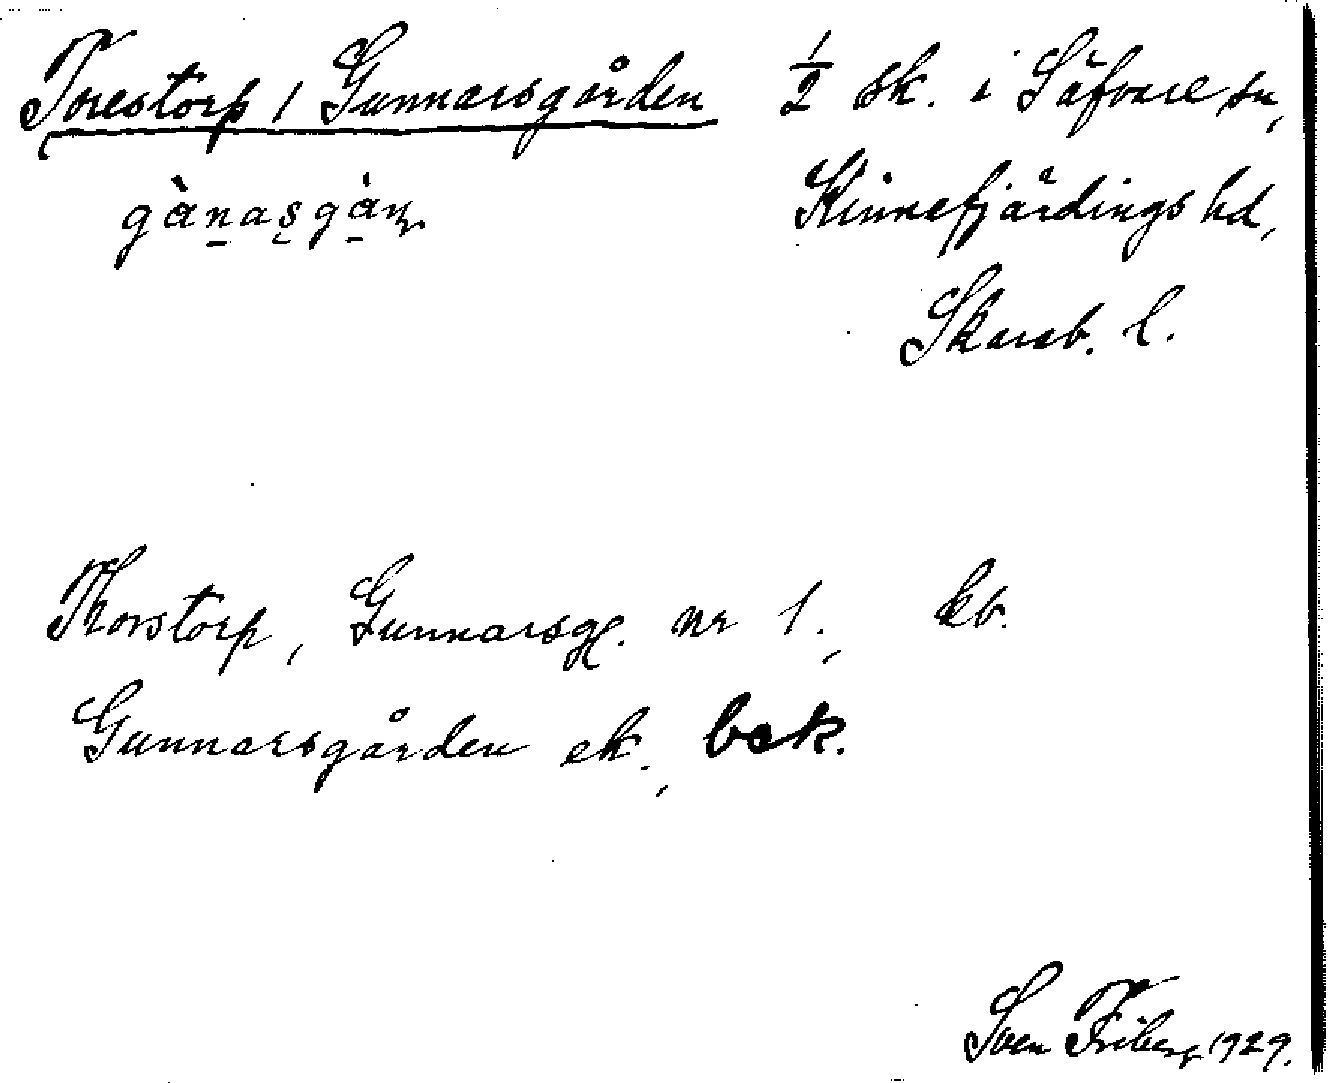 Torestorp 1 Gunnarsgården ½ sk. i Säfvare sn,
gànasgàṇ Kinnefjärdings hd,
Skarab. l.
Thorstorp, Gunnarsg. nr 1., kb.
Gunnarsgården ek., bek.
Sven Friberg 1929.